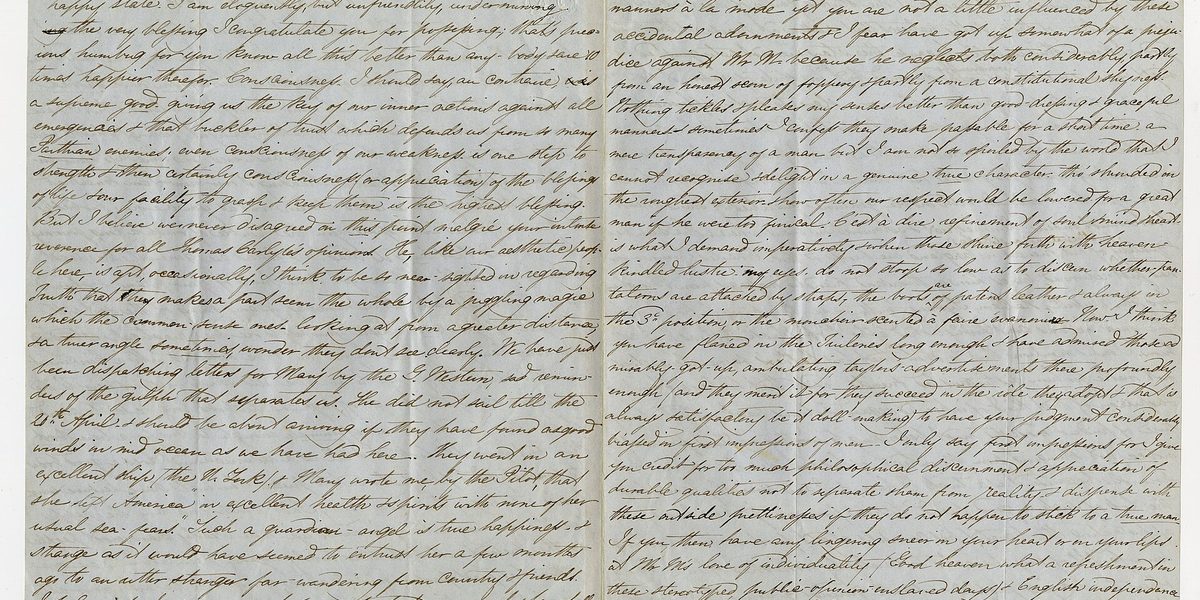 happy state. I am eloquently, but unfriendily, undermining
the very blessing I congratulate you for possessing; that's prec-
ious humbug for you know all this better than any-body save 10
times happier therefor. Consciousness, I should say, au contraire, is
a supreme good. giving us the key of our inner actions against all
emergencies & that buckler of trust which defends us from so many
enemies, even consciousness of our weakness is one step to
strength & then certainly consciousness (or appreciation) of the blessing
of life & our facility to grasp & keep them is the highest blessing.
But I believe we never disagreed on this point malgre your intimate
reverence for all Thomas Carlyle's opinions. He, like our aesthetic peop-
le here, is apt, occasionally, I think to be so near-sighted in regarding
Truth that they makes a part seem the whole by a juggling magic
which the common sense ones looking at from a greater distance
& a truer angle sometimes, wonder they don't see clearly. We have just
been dispatching letters for Mary by the G. Western, sad remin-
ders of the gulph that separates us. She did not sail till the
April & should be about arriving if they have found as good
winds in mid ocean as we have had here. They went in an
excellent ship, the N. York, & Mary wrote me by the Pilot that
she left America in excellent health & spirits with none of her
usual sea-fears. Such a guardian-angel is true happiness &
strange as it would have seemed to entrust her a few months
ago to an utter stranger far-wandering from country & friends.
manners à la mode yet you are not a little influenced by these
accidental adornments & I fear have got up somewhat of a preju-
dice against Mr M. because he neglects both considerably, partly
from an honest scorn of foppery & partly from a constitutional shyness.
Nothing tickles & pleases my senses better than good dressing & graceful
manners & sometimes I confess they make passable for a short time a
mere transparency of a man but I am not so spoiled by the world that I
cannot recognise & delight in a genuine true character, tho' shrouded in
the roughest exterior. & how often our respect would be lowered for a great
man if he were too finical. C'est à dire refinement of soul & mind & heart
is what I demand imperatively & when those shine forth with heaven-
kindled lustre my eyes do not stoop so low as to discern whether pan-
taloons are attached by straps, the boots are of patent leather & always in
the 3d position, or the mouchoir scented à faire evanouir. Now I think
you have flaned in the Tuileries long enough & have admired those ad-
mirably-got-up, ambulating taylors-advertisements there profoundly
enough (and they merit it for they succeed in the role they adopt & that is
always satisfactory be it doll-making) to have your judgment considerably
biassed in first impressions of men. I only say first impressions for I give
you credit for too much philosophical discernment & appreciation of
durable qualities not to separate sham from reality & dispense with
these outside prettinesses if they do not happen to stick to a true man
If you then, have any lingering sneer in your heart or on your lips
at Mr M's love of individuality (Good heaven what a refreshment in
these stereotyped public-opinion-enslaved days) & English independence